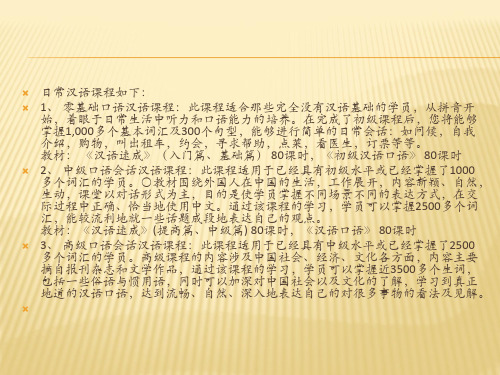 日常汉语课程如下：
1、 零基础口语汉语课程：此课程适合那些完全没有汉语基础的学员，从拼音开
始，着眼于日常生活中听力和口语能力的培养。在完成了初级课程后，您将能够
掌握1,000多个基本词汇及300个句型，能够进行简单的日常会话：如问候，自我
介绍，购物，叫出租车，约会，寻求帮助，点菜，看医生，订票等等。
教材：《汉语速成》（入门篇、基础篇） 80课时，《初级汉语口语》 80课时
2、 中级口语会话汉语课程：此课程适用于已经具有初级水平或已经掌握了1000
多个词汇的学员。〇教材围绕外国人在中国的生活，工作展开，内容新颖、自然，
生动，课堂以对话形式为主，目的是使学员掌握不同场景不同的表达方式，在交
际过程中正确、恰当地使用中文。通过该课程的学习，学员可以掌握2500多个词
汇，能较流利地就一些话题成段地表达自己的观点。
教材：《汉语速成》(提高篇、中级篇) 80课时，《汉语口语》 80课时
3、 高级口语会话汉语课程：此课程适用于已经具有中级水平或已经掌握了2500
多个词汇的学员。高级课程的内容涉及中国社会、经济、文化各方面，内容主要
摘自报刊杂志和文学作品，通过该课程的学习，学员可以掌握近3500多个生词，
包括一些俗语与惯用语，同时可以加深对中国社会以及文化的了解，学习到真正
地道的汉语口语，达到流畅、自然、深入地表达自己的对很多事物的看法及见解。